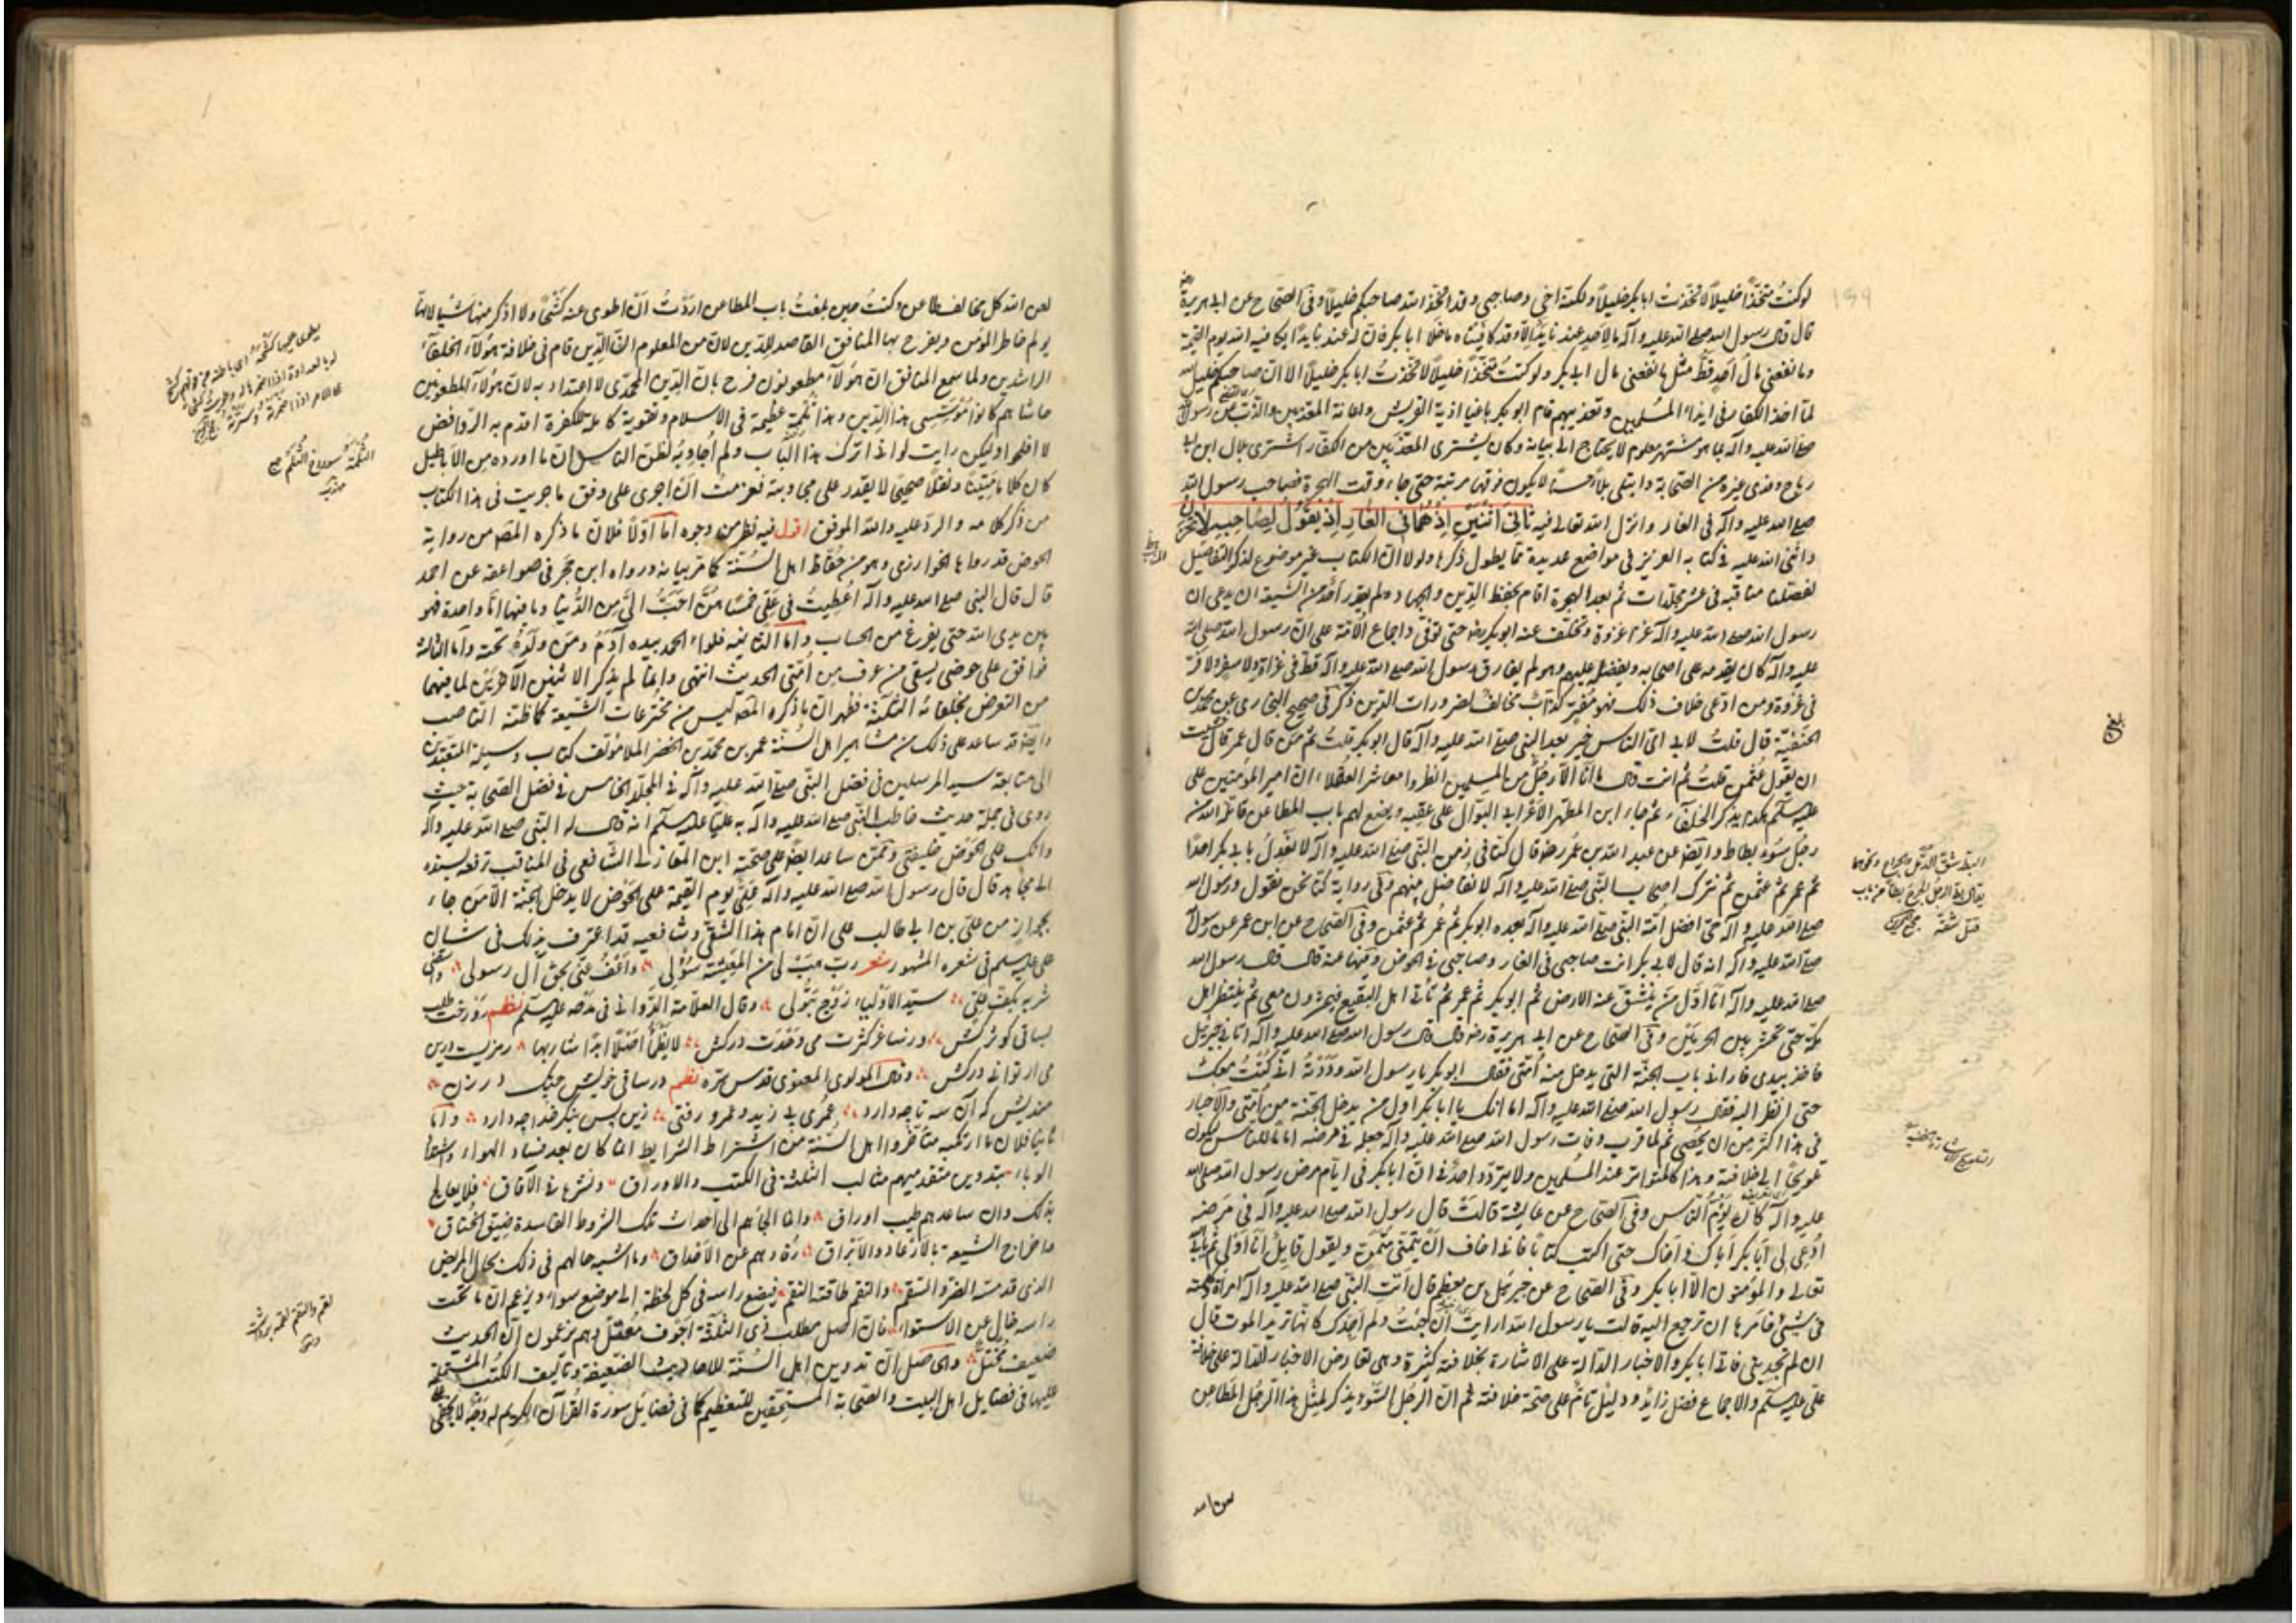 لوكنتُ متخذًا خليلًا لاتخذتُ ابابكر خليلًا ولكنه اخي وصاحبي وقد اتخذ الله صاحبكم خليلًا وفي الصحاح عن ابي هريرة
قال قال رسول الله صلى الله عليه وآله ما لاحد عند نا يدٌ الا وقد كافيناه ما خلا ابابكر فان له عند نا يدًا يكافيه الله يوم القيمة
وما نفعني مالُ احدٍ قط مثل ما نفعني مال ابي بكر ولو كنتُ متخذًا خليلًا لاتخذتُ ابابكر خليلًا الا ان صاحبكم خليل الله
لما اخذ الكفار في ايذاء المسلمين وتعذيبهم قام ابو بكر باعباء اذية القريش واعانة المعذبين والذب عن رسول الله
صلى الله عليه وآله بما هو مشتهر معلوم لا يحتاج الى بيانه وكان يشترى المعذبين من الكفار اشترى بلال ابن ابي
رباح وفدى غيره من الصحابة وابتلى بلاءً حسنًا لا يكون فوقها مرتبة حتى جاء وقت الهجرة فصاحب رسول الله
صلى الله عليه وآله في الغار وانزل الله تعالى فيه ثاني اثنين اذ هما في الغار اذ يقول لصاحبه لا تحزن
واثنى الله عليه في كتابه العزيز في مواضع عديدة مما يطول ذكرها ولولا ان الكتاب غير موضوع لذكر التفاصيل
لفصلنا مناقبه في عشر مجلدات ثم بعد الهجرة اقام بحفظ الدين والجهاد ولم يقدر احدٌ من الشيعة ان يدعى ان
رسول الله صلى الله عليه وآله غزا غزوة وتخلف عنه ابو بكر حتى توفى واجماع الامة على ان رسول الله صلى الله
عليه وآله كان يقدمه على اصحابه ويفضله عليهم وهو لم يفارق رسول الله صلى الله عليه وآله قط في غزاة ولا سفر ولا فر
في غزوة ومن ادعى خلاف ذلك فهو مفترٍ كذاب مخالف لضرورات الدين ذكر في صحيح البخارى عن محمد بن
الحنفية قال قلتُ لابي اي الناس خير بعد النبي صلى الله عليه وآله قال ابو بكر قلتُ ثم من قال عمر قال خشيت
ان يقول عثمن قلتُ ثم انت قال ما انا الا رجل من المسلمين انظروا معاشر العقلاء ان امير المؤمنين على
عليه السلم هكذا يذكر الخلفاء ثم جاء ابن المطهر الاعرابي البوّال على عقبيه ويضع لهم باب المطاعن قاتله الله من
رجل سوء بطاط وايضًا عن عبد الله بن عمر رض قال كنا في زمن النبي صلى الله عليه وآله لا نعدل بابي بكر احدًا
ثم عمر ثم عثمن ثم نترك اصحاب النبي صلى الله عليه وآله لا نفاضل بينهم وفي رواية كنا نحن نقول ورسول الله
صلى الله عليه وآله حي افضل امة النبي صلى الله عليه وآله بعده ابو بكر ثم عمر ثم عثمن وفي الصحاح عن ابن عمر عن رسول الله
صلى الله عليه وآله انه قال لابي بكر انت صاحبي في الغار وصاحبي في الحوض وفيها عنه قال قال رسول الله
صلى الله عليه وآله انا اول من ينشق عنه الارض ثم ابو بكر ثم عمر ثم ناتى اهل البقيع فيحشرون معى ثم ننتظر اهل
مكة حتى نحشر بين الحرمين وفي الصحاح عن ابي هريرة رض قال قال رسول الله صلى الله عليه وآله اتاني جبريل
فاخذ بيدي فاراني باب الجنة التى يدخل منه امتى فقال ابو بكر يا رسول الله وددتُ اني كنتُ معك
حتى انظر اليه فقال رسول الله صلى الله عليه وآله اما انك يا ابابكر اول من يدخل الجنة من امتى والاخبار
في هذا اكثر من ان يحصى ثم لما قرب وفات رسول الله صلى الله عليه وآله جعله في مرضه اماما للناس ليكون
تلويحًا الى خلافته وهذا كالمتواتر عند المسلمين ولا يتردد احدٌ في ان ابابكر في ايام مرض رسول الله صلى الله
عليه وآله كان يؤم الناس وفي الصحاح عن عايشة قالت قال رسول الله صلى الله عليه وآله في مرضه
ادعى لي ابابكر اباك واخاك حتى اكتب كتابًا فاني اخاف ان يتمنى متمن ويقول قايل انا اولى ثم يابى الله
تعالى والمؤمنون الا ابابكر وفي الصحاح عن جبير بن مطعم قال اتت النبي صلى الله عليه وآله امراة فكلمته
في شئ فامرها ان ترجع اليه قالت يا رسول الله ارايت ان جئت ولم اجدك كانها تريد الموت قال
ان لم تجديني فاتى ابابكر والاخبار الدالة على الاشارة بخلافته كثيرة وهى تعارض الاخبار الدالة على خلافة
على عليه السلم والاجماع فضل زائد ودليل تام على صحة خلافته ثم ان الرجل السوء يذكر لمثل هذا الرجل المطاعن
البط شق الدمل والجراح ونحوهما
لعن الله كل مخالف طاعن وكنتُ حين بلغتُ باب المطاعن اردتُ ان اطوى عنه كشحًا ولا اذكر منها شيئا لانها
يولم خاطر المؤمن ويفرح بها المنافق القاصد للدين لان من المعلوم ان الدين قام في خلافة هؤلاء الخلفاء
الراشدين ولما سمع المنافق ان هؤلاء مطعونون فرح بان الدين المحمدى لا اعتداد به لان هؤلاء المطعونين
حاشاهم كانوا مؤسسى هذا الدين وهذا ثلمة عظيمة في الاسلام وتقوية كاملة للكفرة اقدم به الروافض
لا افلحوا ولكن رايت لو اني اترك هذا الباب ولم اجاوبه لظن الناس ان ما اورده من الاباطيل
كان كلامًا متينًا ونقلًا صحيحًا لا يقدر على مجاوبته فعزمت ان اجرى على وفق ما جريت في هذا الكتاب
من ذكر كلامه والرد عليه والله الموفق اقول فيه نظر من وجوه اما اولًا فلان ما ذكره المصـ من رواية
الحوض قد رواها الخوارزمى وهو من حفاظ اهل السنة كما مر بيانه ورواه ابن حجر في صواعقه عن احمد
قال قال النبي صلى الله عليه وآله اعطيتُ في على خمسًا هن احب الى من الدنيا وما فيها اما واحدة فهو
بين يدى الله حتى يفرغ من الحساب واما الثانية فلواء الحمد بيده آدم ومن ولده تحته واما الثالثة
فواقف على حوضى يسقى من عرف من امتى الحديث انتهى وانما لم يذكر الاثنين الآخرين لما فيهما
من التعرض بخلفائه الثلثة فظهر ان ما ذكره المصـ ليس من مخترعات الشيعة كما ظنه الناصب
وايضًا قد ساعد على ذلك من مشاهير اهل السنة عمر بن محمد بن الخضر الملا مؤلف كتاب وسيلة المتعبدين
الى متابعة سيد المرسلين في فضل النبي صلى الله عليه وآله في المجلد الخامس في فضل الصحابة حيث
روى في جملة حديث خاطب النبي صلى الله عليه وآله به عليًا عليه السلم انه قال له النبي صلى الله عليه وآله
وانك على الحوض خليفتى وممن ساعد ايضًا على صحته ابن المغازلى الشافعى في المناقب رفعه بسنده
الى مجاهد قال قال رسول الله صلى الله عليه وآله على يوم القيمة على الحوض لا يدخل الجنة الا من جاء
بجواز من على بن ابي طالب على ان امام هذا الشقى وشافعيه قد اعترف بذلك في شان
على عليه السلم في شعره المشهور شعر رب هب لي من المعيشة سؤلى واعف عنى بحق آل رسولى واسقنى
شربة بكف على سيد الاولياء زوج بتولى وقال العلامة الدوانى في مدحه عليه السلم نظم
وقال المولوى المعنوى قدس سره نظم
الوباء بتدوين متقدميهم مثالب الثلثة في الكتب والاوراق ونشرها في الآفاق فلا يعالج
بذلك وان ساعدهم طبيب اوراق وانما الجاهم الى احداث تلك الشروط الفاسدة ضيق الخناق
راسه خال عن الاستواء فان اصل مطلب ذى الثلثة اجوف معتل وهم يزعمون ان الحديث
ضعيف مختل والحاصل ان تدوين اهل السنة للاحاديث الضعيفة وتاليف الكتب المشتملة
عليها في فضايل اهل البيت والصحابة المستحقين للتعظيم كما في فضايل سورة القرآن الكريم له وجه لا يخفى